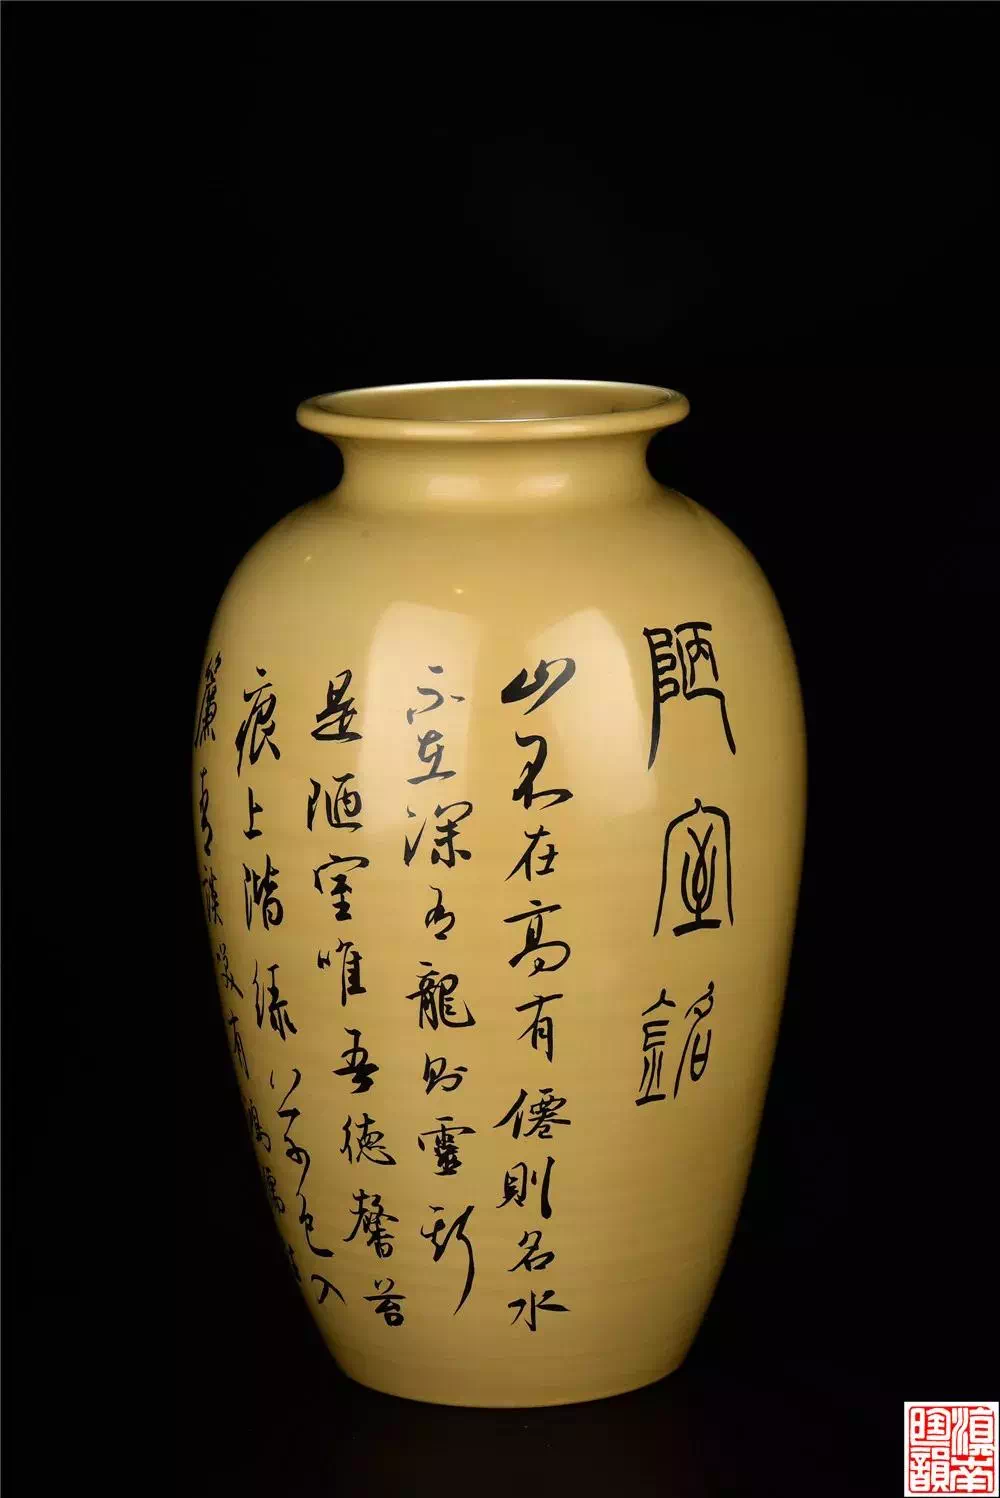 陋室銘
山不在高有僊則名水
不在深有龍則靈斯
是陋室唯吾德馨苔
痕上階緑草色入
簾青談笑有鴻儒
滇南
陶韻